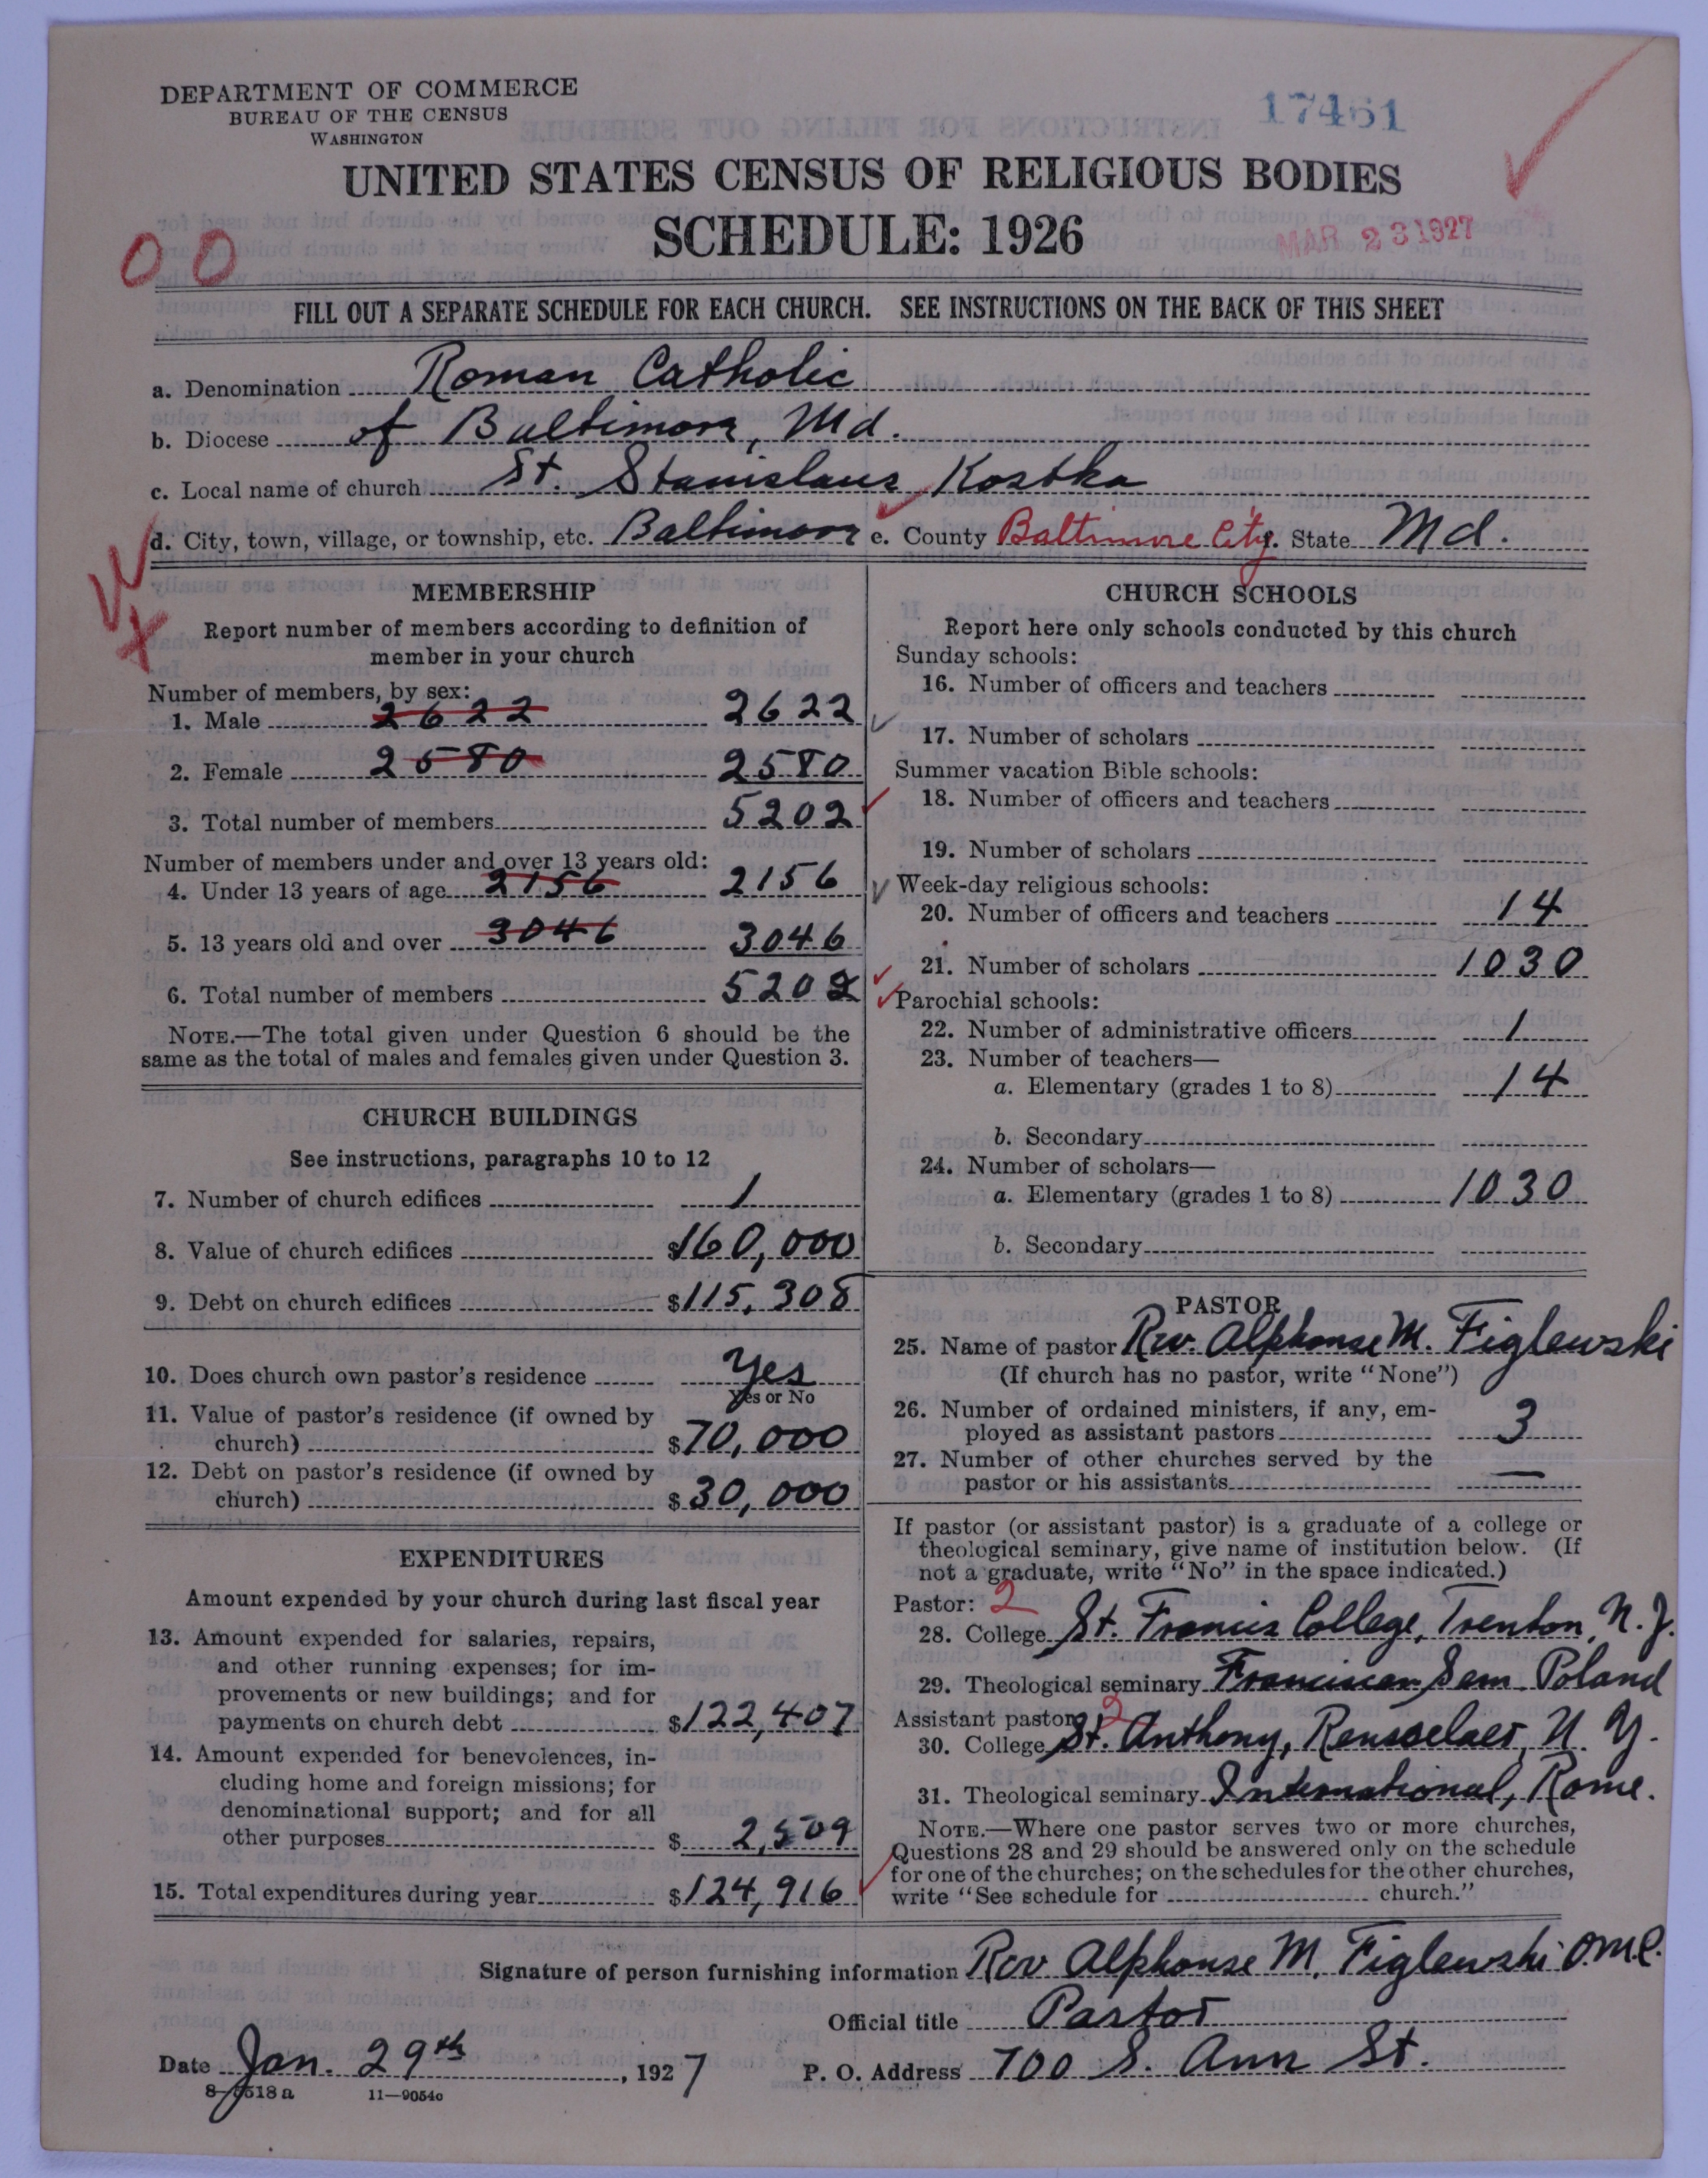 DEPARTMENT OF COMMERCE
BUREAU OF THE CENSUS
WASHINGTON
17461
UNITED STATES CENSUS OF RELIGIOUS BODIES
SCHEDULE: 1926
MAR 23 1927
00
FILL OUT A SEPARATE SCHEDULE FOR EACH CHURCH. SEE INSTRUCTIONS ON THE BACK OF THIS SHEET
a. Denomination Roman Catholic
b. Diocese of Baltimore, Md.
c. Local name of church St. Stanislaus Kostka
d. City, town, village, or township, etc. Baltimore e. County Baltimore City f. State Md.
MEMBERSHIP
Report number of members according to definition of
member in your church
Number of members, by sex:
1. Male 2622 2622
2. Female 2580 2580
3. Total number of members 5202
Number of members under and over 13 years old:
4. Under 13 years of age 2156 2156
5. 13 years old and over 3046 3046
6. Total number of members 5202
NOTE.—The total given under Question 6 should be the
same as the total of males and females given under Question 3.
CHURCH BUILDINGS
See instructions, paragraphs 10 to 12
7. Number of church edifices 1
8. Value of church edifices $160,000
9. Debt on church edifices $115,308
10. Does church own pastor's residence Yes
Yes or No
11. Value of pastor's residence (if owned by
church) $70,000
12. Debt on pastor's residence (if owned by
church) $30,000
EXPENDITURES
Amount expended by your church during last fiscal year
13. Amount expended for salaries, repairs,
and other running expenses; for im-
provements or new buildings; and for
payments on church debt $122,407
14. Amount expended for benevolences, in-
cluding home and foreign missions; for
denominational support; and for all
other purposes $2,509
15. Total expenditures during year $124,916
CHURCH SCHOOLS
Report here only schools conducted by this church
Sunday schools:
16. Number of officers and teachers
17. Number of scholars
Summer vacation Bible schools:
18. Number of officers and teachers
19. Number of scholars
Week-day religious schools:
20. Number of officers and teachers 14
21. Number of scholars 1030
Parochial schools:
22. Number of administrative officers 1
23. Number of teachers—
a. Elementary (grades 1 to 8) 14
b. Secondary
24. Number of scholars—
a. Elementary (grades 1 to 8) 1030
b. Secondary
PASTOR
25. Name of pastor Rev. Alphonse M. Figlewski
(If church has no pastor, write "None")
26. Number of ordained ministers, if any, em-
ployed as assistant pastors 3
27. Number of other churches served by the
pastor or his assistants —
If pastor (or assistant pastor) is a graduate of a college or
theological seminary, give name of institution below. (If
not a graduate, write "No" in the space indicated.)
Pastor: 2
28. College St. Francis College, Trenton, N. J.
29. Theological seminary Franciscan Sem. Poland
Assistant pastor: 2
30. College St. Anthony, Rensselaer, N. Y.
31. Theological seminary International, Rome.
NOTE.—Where one pastor serves two or more churches,
Questions 28 and 29 should be answered only on the schedule
for one of the churches; on the schedules for the other churches,
write "See schedule for church."
Signature of person furnishing information Rev Alphonse M. Figlewski O.M.C.
Official title Pastor
Date Jan. 29th, 1927 P. O. Address 700 S. Ann St.
8—9518a 11—9054c